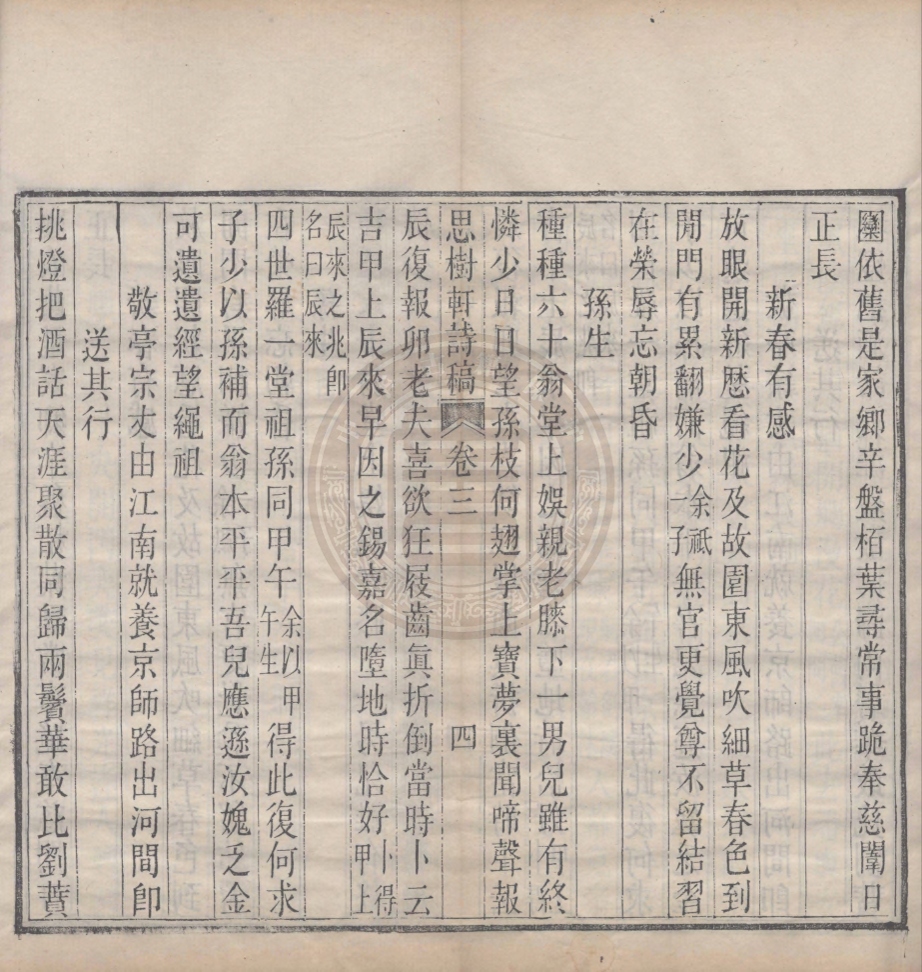 圞依舊是家鄉辛盤栢葉尋常事跪奉慈闈日
正長
新春有感
放眼開新厯看花及故園東風吹細草春色到
閒門有累翻嫌少余祇一子無官更覺尊不留結習
在榮辱忘朝昏
孫生
種種六十翁堂上娛親老膝下一男兒雖有終
憐少日日望孫枝何翅掌上寶夢裏聞啼聲報
思樹軒詩稿 卷三 四
辰復報卯老夫喜欲狂屐齒眞折倒當時卜云
吉甲上辰來早因之錫嘉名墮地時恰好卜得甲上
辰來之兆卽名曰辰來
四世羅一堂祖孫同甲午余以甲午生得此復何求
子少以孫補而翁本平平吾兒應遜汝媿乏金
可遺遺經望繩祖
敬亭宗丈由江南就養京師路出河間卽
送其行
挑燈把酒話天涯聚散同歸兩鬢華敢比劉蕡